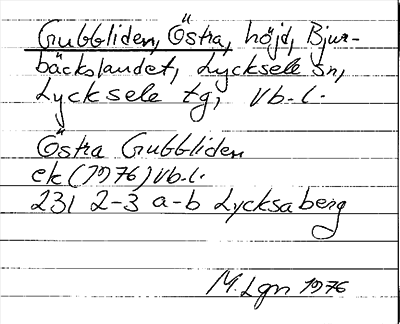 Gubbliden, Östra, höjd, Bjur-
bäckslandet, Lycksele sn,
Lycksele tg, Vb. l.
Östra Gubbliden
ek (1976) Vb. l.
231 2-3 a-b Lycksaberg
M. Lgn 1976